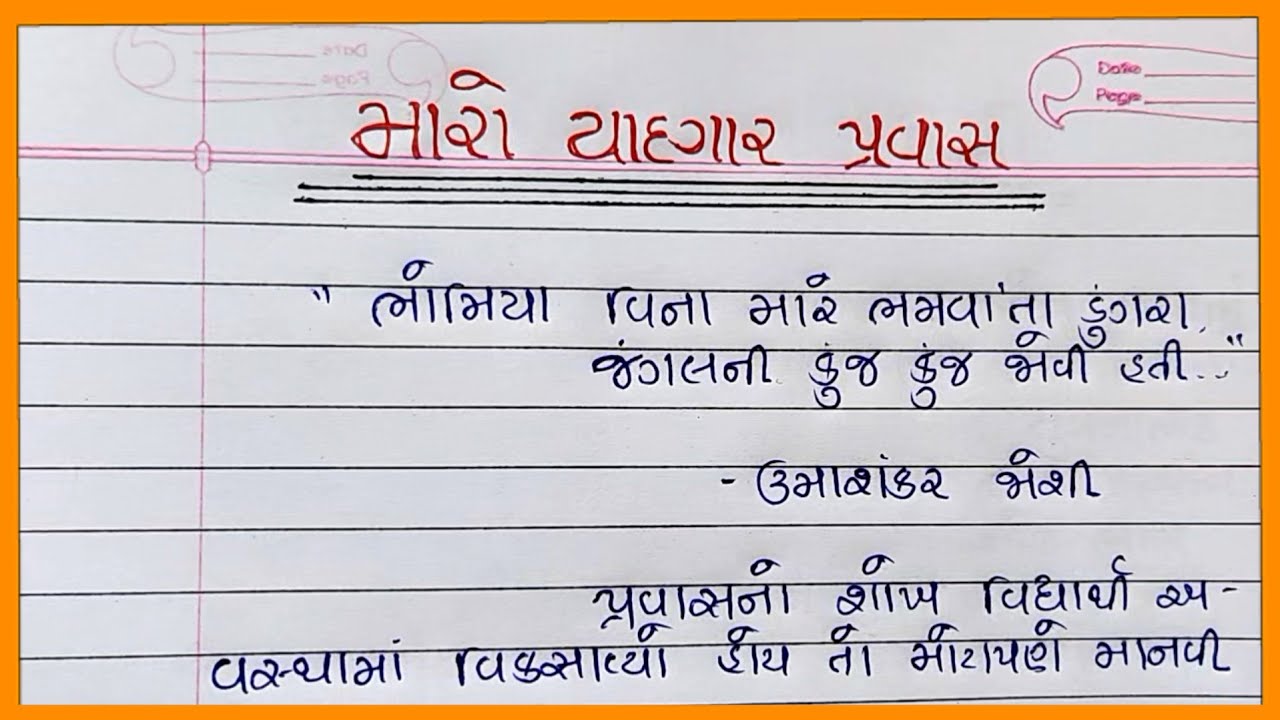 Date
Page
Date
Page
મારો યાદગાર પ્રવાસ
" ભોમિયા વિના મારે ભમવા'તા ડુંગરા,
જંગલની કુંજ કુંજ જોવી હતી..."
- ઉમાશંકર જોશી
પ્રવાસનો શોખ વિદ્યાર્થી અ-
વસ્થામાં વિકસાવ્યો હોય તો મોટાપણે માનવી